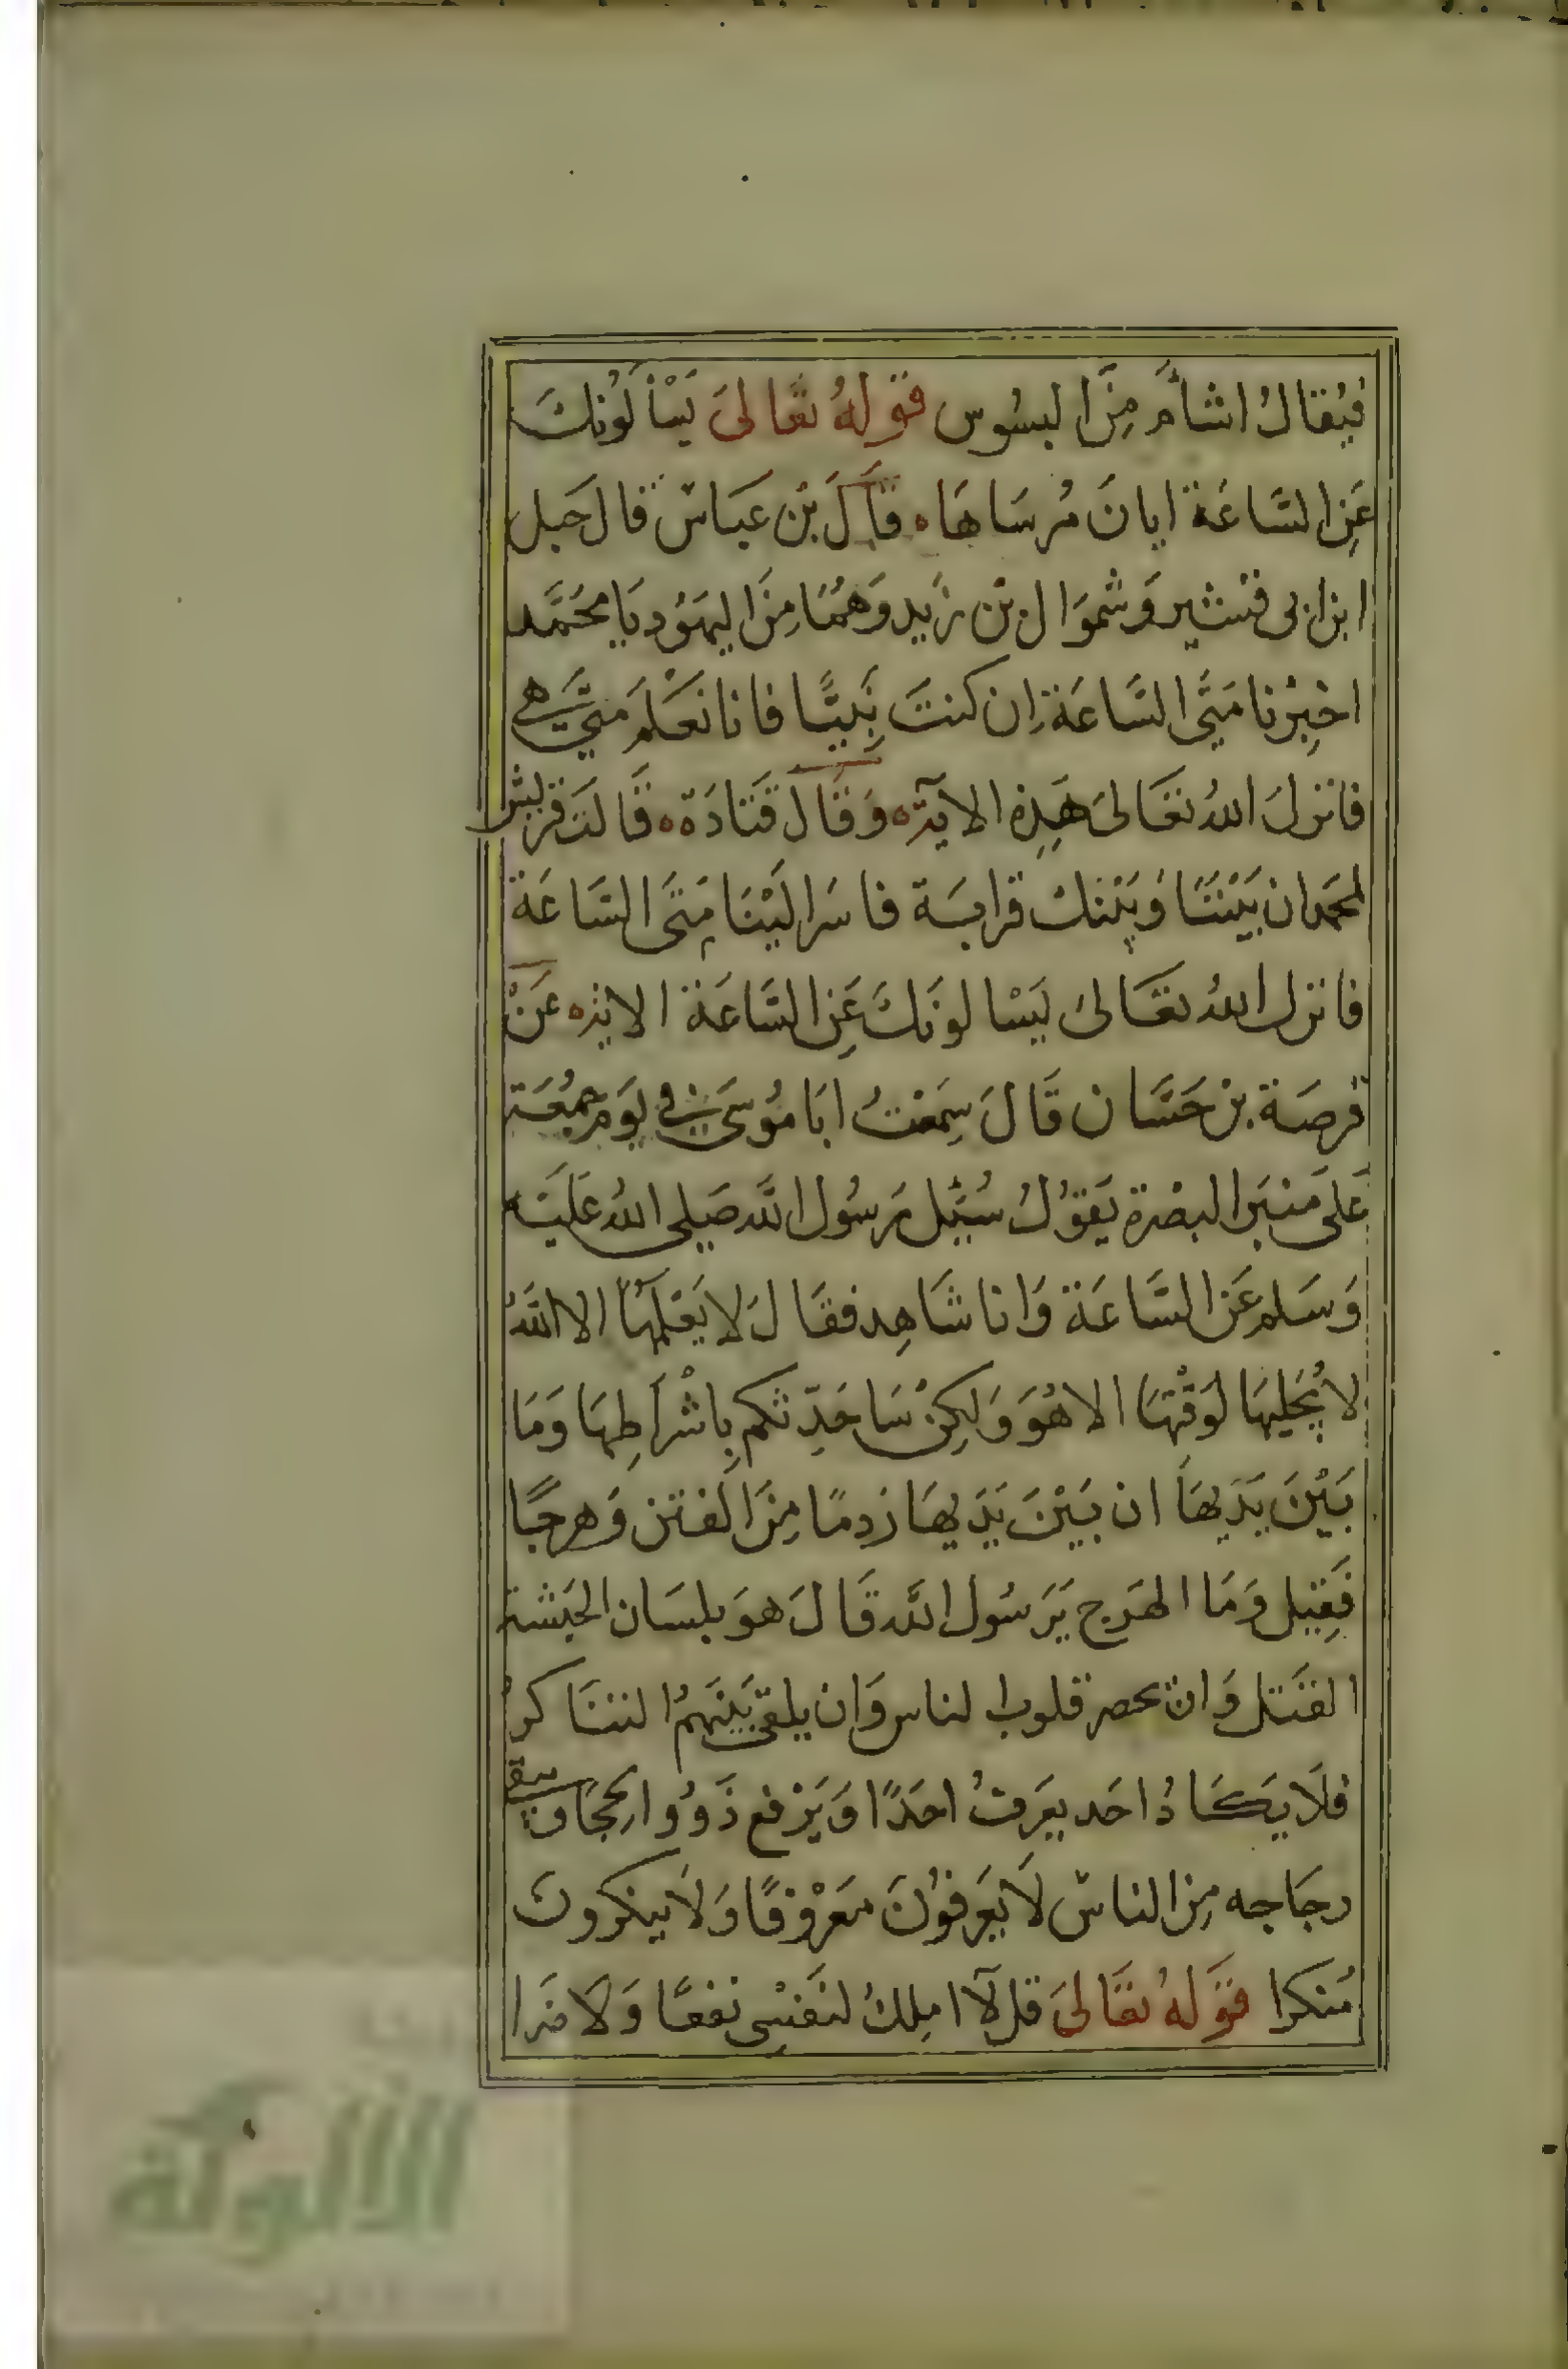 فيُقالُ اشأَم مِنَ البسُوس قَوله تعَالىَ يَسْأَلُونكَ
عَنِ السَّاعَة ايانَ مُرسَاهَا ه قَالَ بْن عَبَاسْ قال حَبل
ابن ابى قشير وَشموَال بْن زَيد وَهُمَا مِنَ اليهَوُد يَا محَمَّد
اخبِرْنا مَتَى السَّاعَة اِن كنتَ نَبِيًّا فانا نَعَلمَ متى هى
فانزلَ اللهُ تعَالىَ هَذِهِ الايَة ه وَقَالَ قَتَادَة ه ه قَالت قريش
لمحمد ان بَيْنَنَا وَبَيْنكَ قرابَة فاسَر اليْنَا مَتَى السَّاعَة
فانزل اللهُ تعَالىَ يَسْالونَكَ عَنِ السَّاعَة الاية ه عَنْ
قرصَة بْن حَسَّان قَالَ سِمَعْتُ ابَا مُوسَى في يَوم جمُعَة
عَلى مَنْبَر البصْرة يَقوُلُ سُئِل رَسُول الله صَلى اللهُ عَليَه
وَسَلم عَنِ السَّاعَة وَانا شَاهِد فقَالَ لا يَعَلمهَا الا اللهُ
لا يُجَليهَا لوَقْتهَا الا هُوَ وَلكِنْ سَاحَدِّثكم بِاشْرَاطِهَا وَمَا
بَيْنَ يَدَيهَا ان بَيْنَ يَدَيهَا رَدمًا مِنَ الفتن وَهرجًا
فَقِيل وَمَا الهَرج يَرَسُول الله قَالَ هوَ بلسَان الحبَشة
القتَل وَان تحصر قلوب الناس وَان يلقى بَينَهمُ التنَاكر
فلَا يَكَادُ احَد يعَرفُ احَدًا وَيَرْفع ذَوُوا الحجَا وتبقى
رجَاجه مِن الناسْ لَا يَعَرفوُنَ مَعَرْوُفًا وَلَا ينكرونَ
مُنكرا قَوَلهُ تعَالىَ قل لآ امِلكُ لنَفسِى نفعًا وَلَا ضَرا
الألوكة